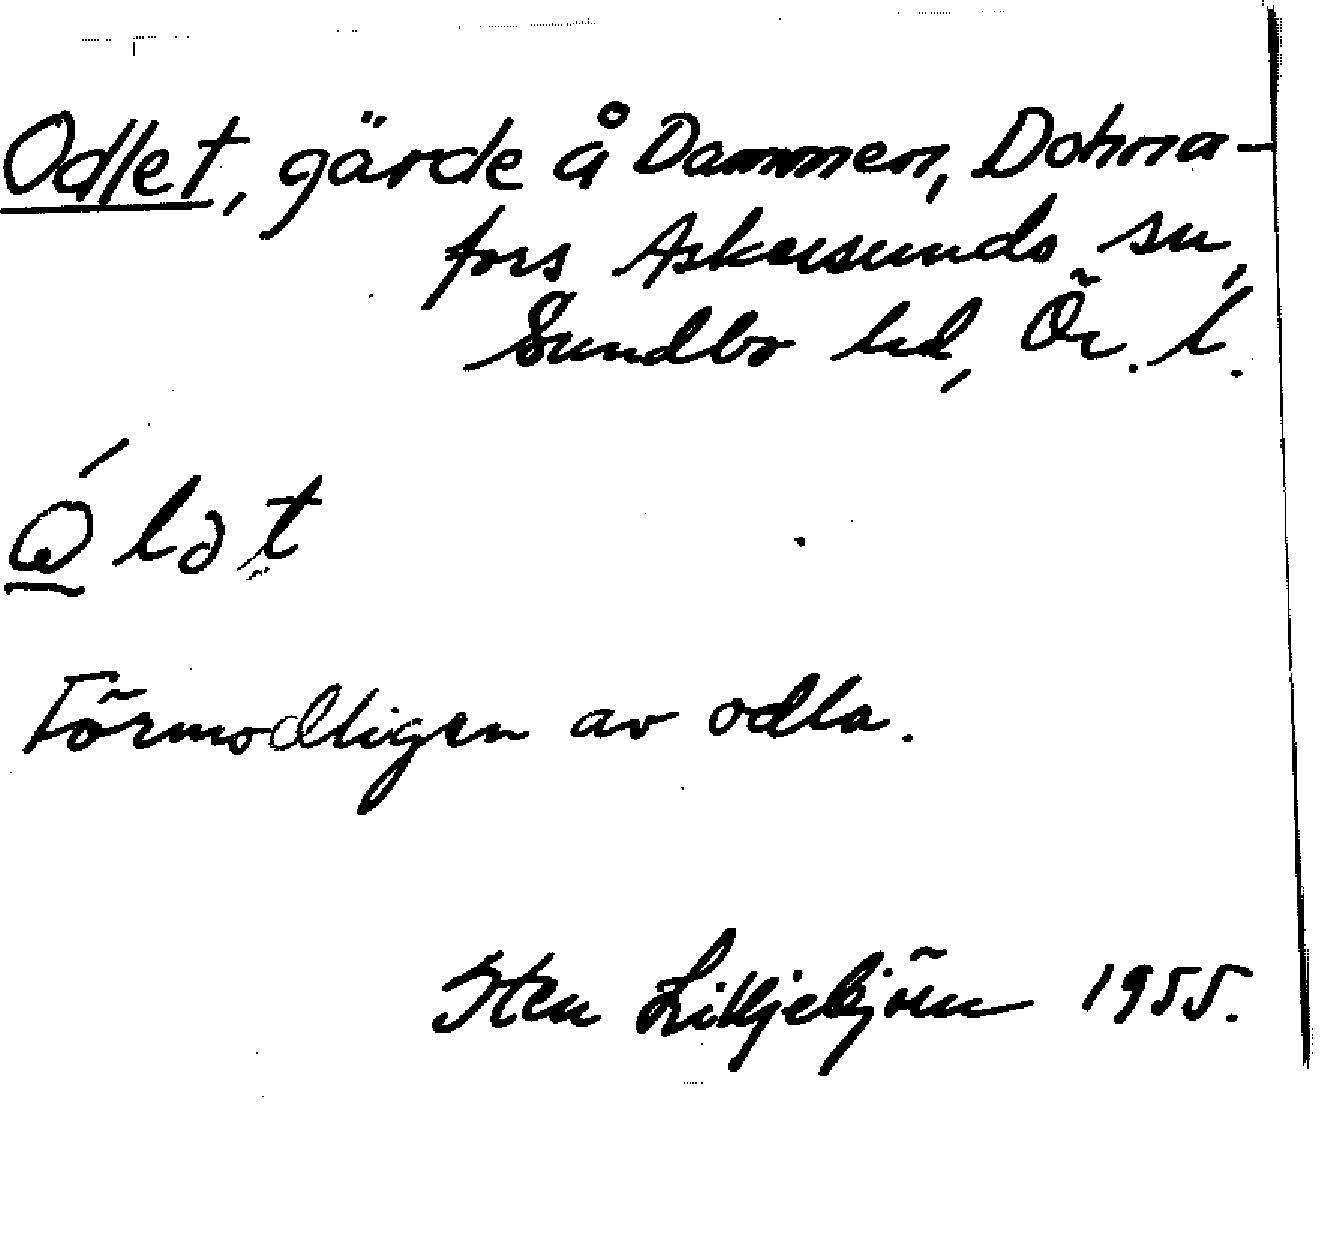 Odlet, gärde å Dammen, Dohna-
fors Askersunds sn,
Sundbo hd, Ör. l.
lət
Förmodligen av odla.
Sten Liljebjörn 1955.